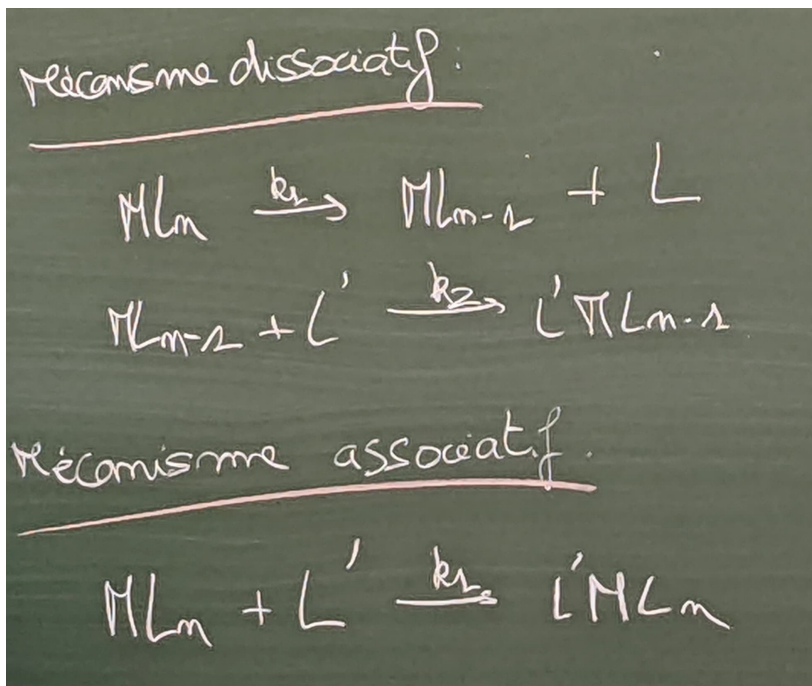 Mécanisme dissociatif :
MLn k1→ MLn-1 + L
MLn-1 + L' k2→ L'MLn-1
Mécanisme associatif.
MLn + L' k1→ L'MLn